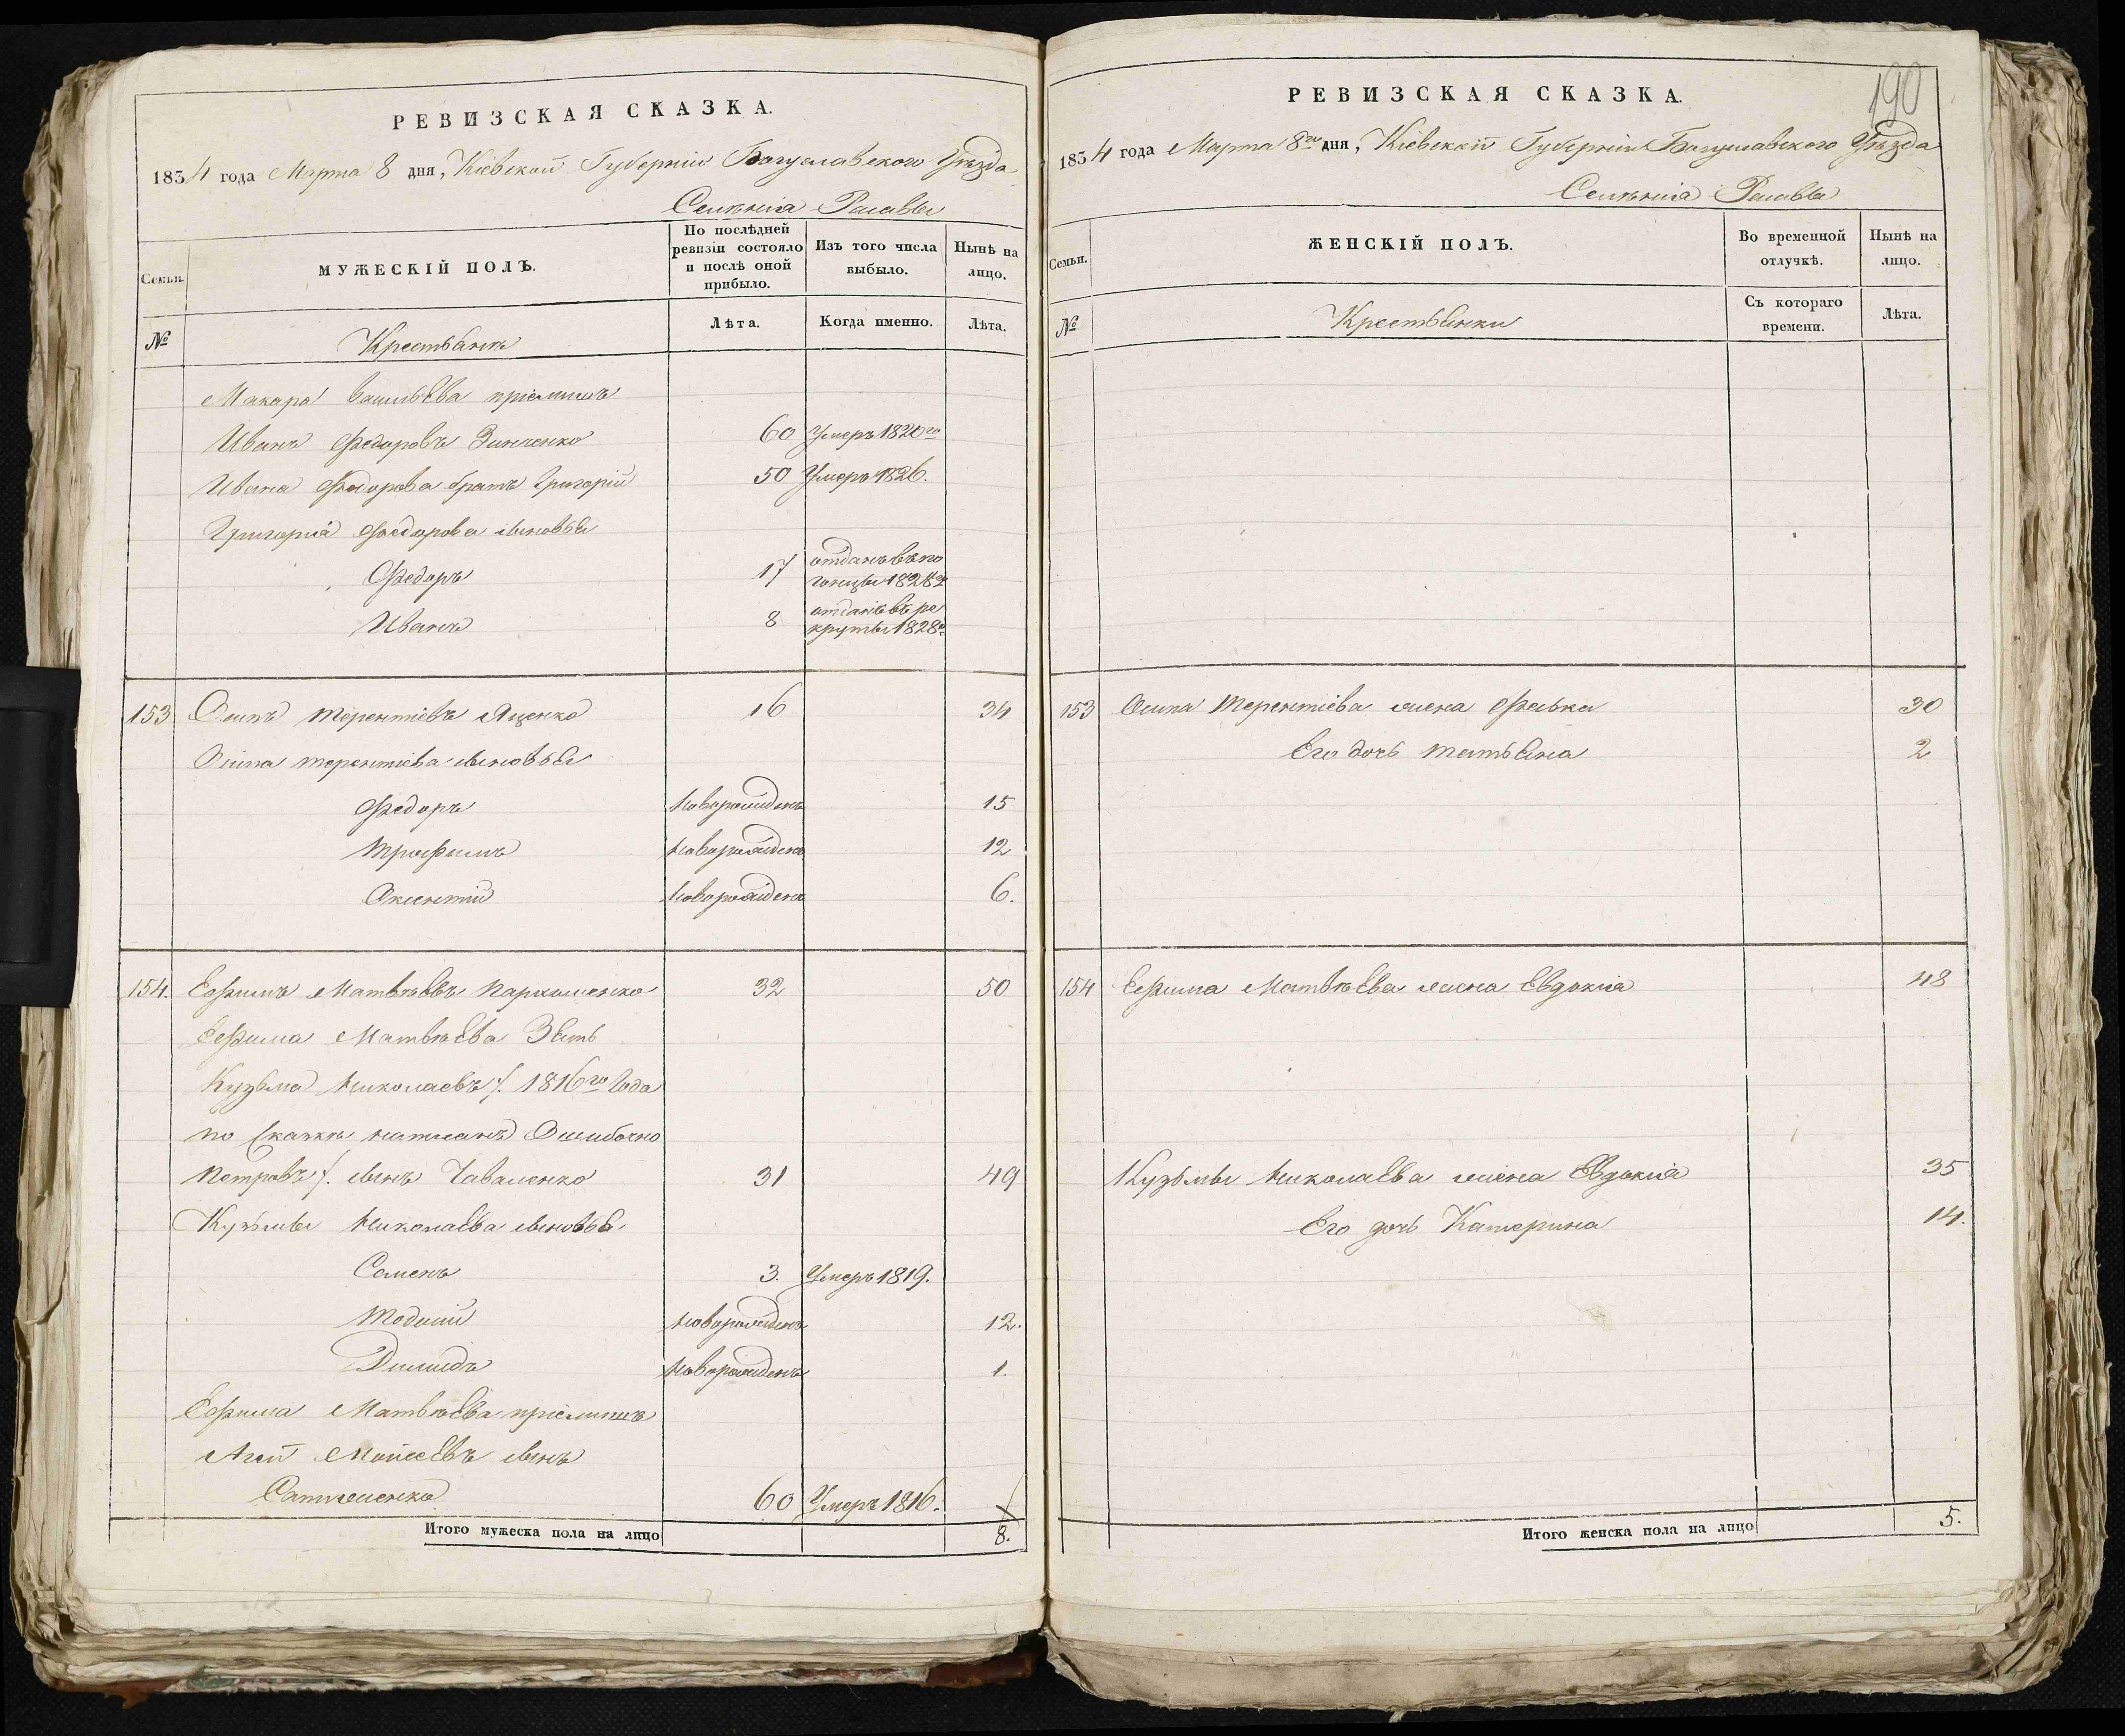 РЕВИЗСКАЯ СКАЗКА.
1834 года Марта 8 дня, Кіевской Губерніи Богуславского Уѣзда
Селѣнія Расавы
Семьи.
МУЖЕСКІЙ ПОЛЪ.
По послѣдней ревизіи состояло и послѣ оной прибыло.
Изъ того числа выбыло.
Нынѣ на лицо.
№
Крестьянъ
Лѣта.
Когда именно.
Лѣта.
Макара Васильева пріемышъ
Иванъ Федоровъ Зинченко 60 Умеръ 1820го
Ивана Федорова братъ Григорій 50 Умеръ 1826.
Григорія Федорова сыновья
Федоръ 17 отданъ въ по
гонцы 1828г
Иванъ 8 отданъ въ ре
круты 1828г
153 Осипъ Терентіевъ Яценко 16 34
Осипа Терентіева сыновья
Федоръ новорожденъ 15
Трофимъ новорожденъ 12
Аксентій новорожденъ 6.
154. Ефимъ Матвѣевъ Пархоменко 32 50
Ефима Матвѣева Зять
Кузьма Николаевъ /. 1816го Года
по Сказкѣ написанъ Ошибочно
Петровъ /. сынъ Чаваленко 31 49
Кузьмы Николаева сыновья
Семенъ 3. Умеръ 1819.
Тодосій новорожденъ 12.
Димидъ новорожденъ 1.
Ефима Матвѣева пріемышъ
Моисеевъ сынъ
60 Умеръ 1816.
Итого мужеска пола на лицо 8.
190
РЕВИЗСКАЯ СКАЗКА.
1834 года Марта 8го дня, Кіевской Губерніи Богуславского Уѣзда
Селѣнія Расавы
Семьи.
ЖЕНСКІЙ ПОЛЪ.
Во временной отлучкѣ.
Нынѣ на лицо.
№
Крестьянки
Съ котораго времени.
Лѣта.
153 Осипа Терентіева жена Феська 30
Его дочь Татьяна 2
154 Ефима Матвѣева жена Евдокія 48
Кузьмы Николаева жена Евдокія 35
Его дочь Катерина 14.
Итого женска пола на лицо 5.